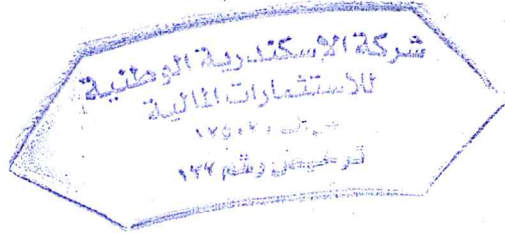 شركة الإسكندرية الوطنية
للاستثمارات المالية
ترخيص رقم ١٢٢